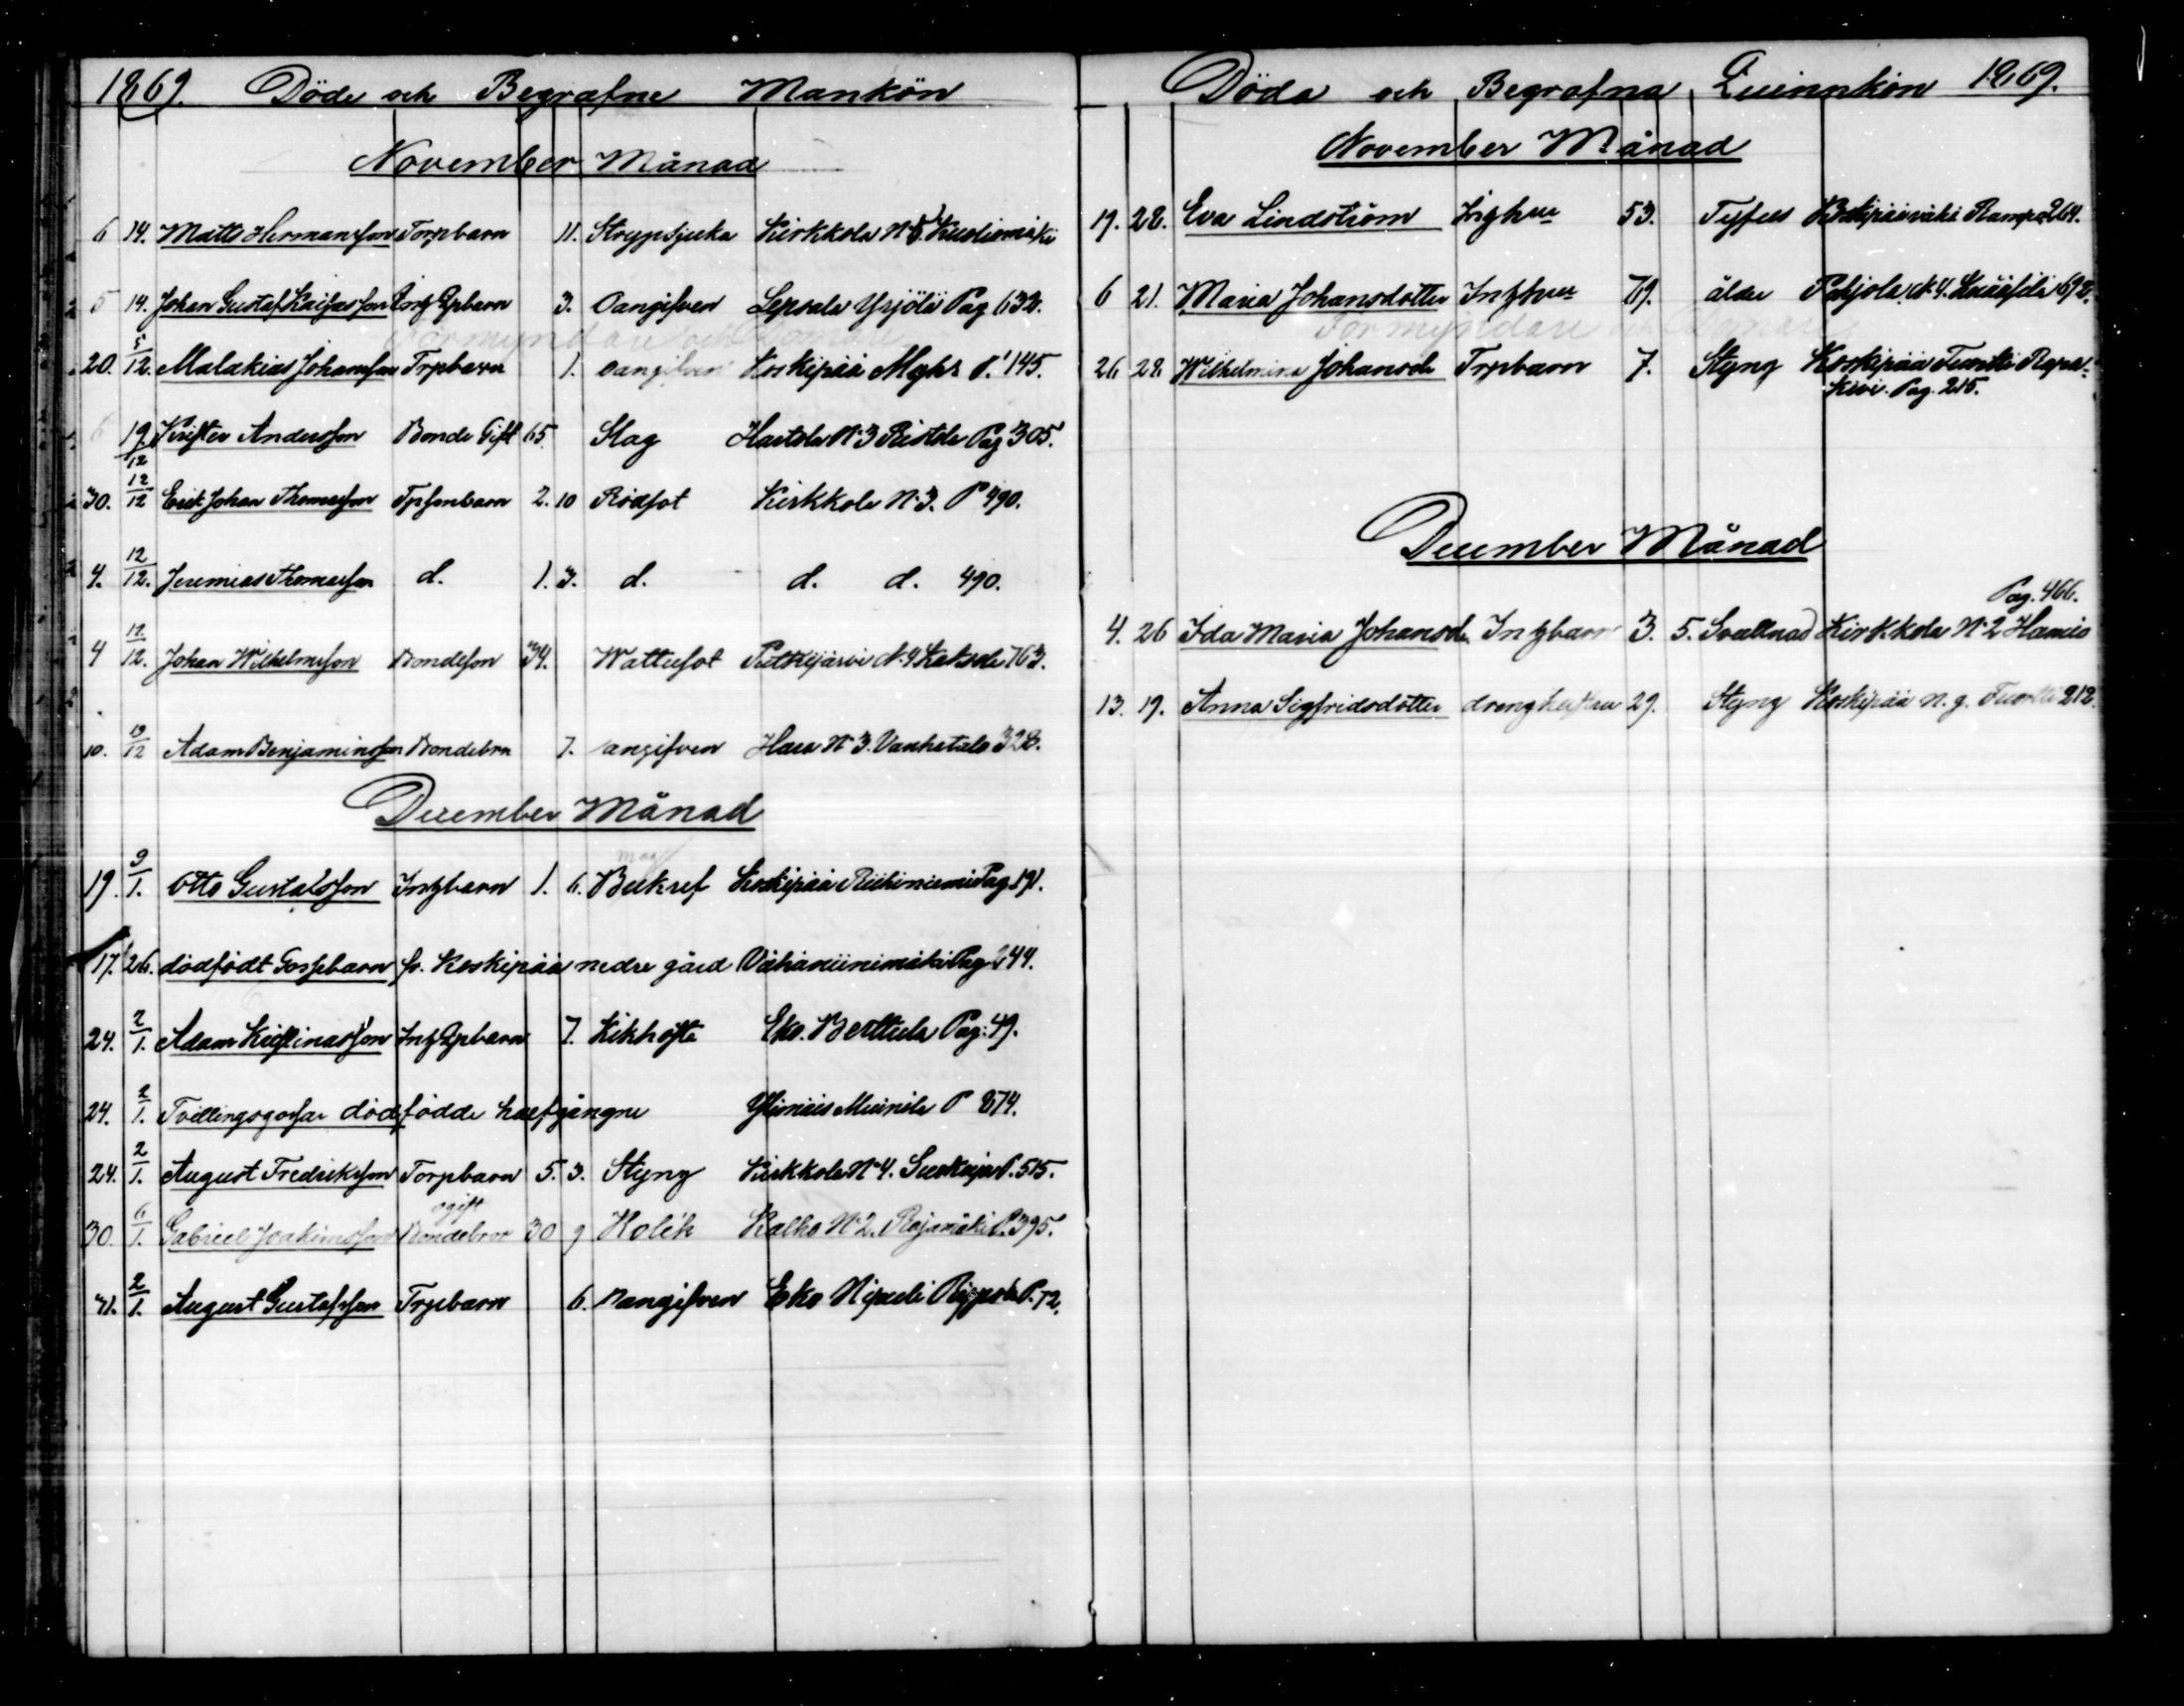 1869. Döde och Begrafne Mankön
November Månad
6 14. Matts Hermansson Torpbarn 11. Strypsjuka Kirkkola N:5 Kuoliomäki
5 14. Johan Gustaf Kaifasson 3. Oangifven Lepsala Yrjölä Pag 632.
20. 5/12. Malakias Johansson Trpbarn 1. oangifven Koskipää Myhr P. 145.
6 19/12 Krister Andersson Bonde Gift 65. Slag Haetola N:3 Ristola Pag 305.
30. 12/12 Erik Johan Thomasson Tpsonbarn 2. 10 Rödsot Kirkkola N:3. P 490.
4. 12/12. Jeremias Thomasson d. 1. 3. d. d. d. 490.
4 12/12. Johan Wilhelmsson Bondeson 34. Wattusot Putkijärvi N:4 763.
10. 19/12 Adam Benjaminsson Bondebrn 7. oangifven Hara N:3. Vanhatalo 328.
December Månad
mag
19. 9/1. Otto Gustafsson Inhbarn 1. 6. Bukref Koskipää Riihiniemi Pag 191.
17. 26. dödfödt Gossbarn fr. Koskipää nedre gård Vähäniinimäki Pag 244.
24. 2/1. Adam Kristinasson 7. Kikhosta Eko. Berttula Pag: 49.
24. 2/1. Tvillingsgossar dödfödde halfgångne Ylimäis Muinila P 874.
24. 2/1. August Fredriksson Torpbarn 5. 3. Styng Kirkkola N:4. P. 515.
ogift
30. 6/1. Gabriel Joakimsson Bondebror 30 9 Kolik Kalho N:2. Rajamäki P. 395.
31. 2/1. August Gustafsson Trpbarn 6. oangifven Eko Nipuli P. 72.
Döda och Begrafna Quinnkön 1869.
November Månad
19. 28. Eva Lindström Inhhu 53. Tyfus Koskipää väki Rampa 264.
6 21. Maria Johansdotter Inhhu 79. ålder Pohjola N:4. 692.
26 28. Wilhelmina Johansd Trpbarn 7. Styng Koskipää Tuorila Repa-
kivi. Pag. 215.
December Månad
Pag. 466.
4. 26 Ida Maria Johansd. Inhbarn 3. 5. Svullnad Kirkkola N:2
13. 19. Anna Sigfridsdotter drenghustru 29. Styng Koskipää n. g. 212.